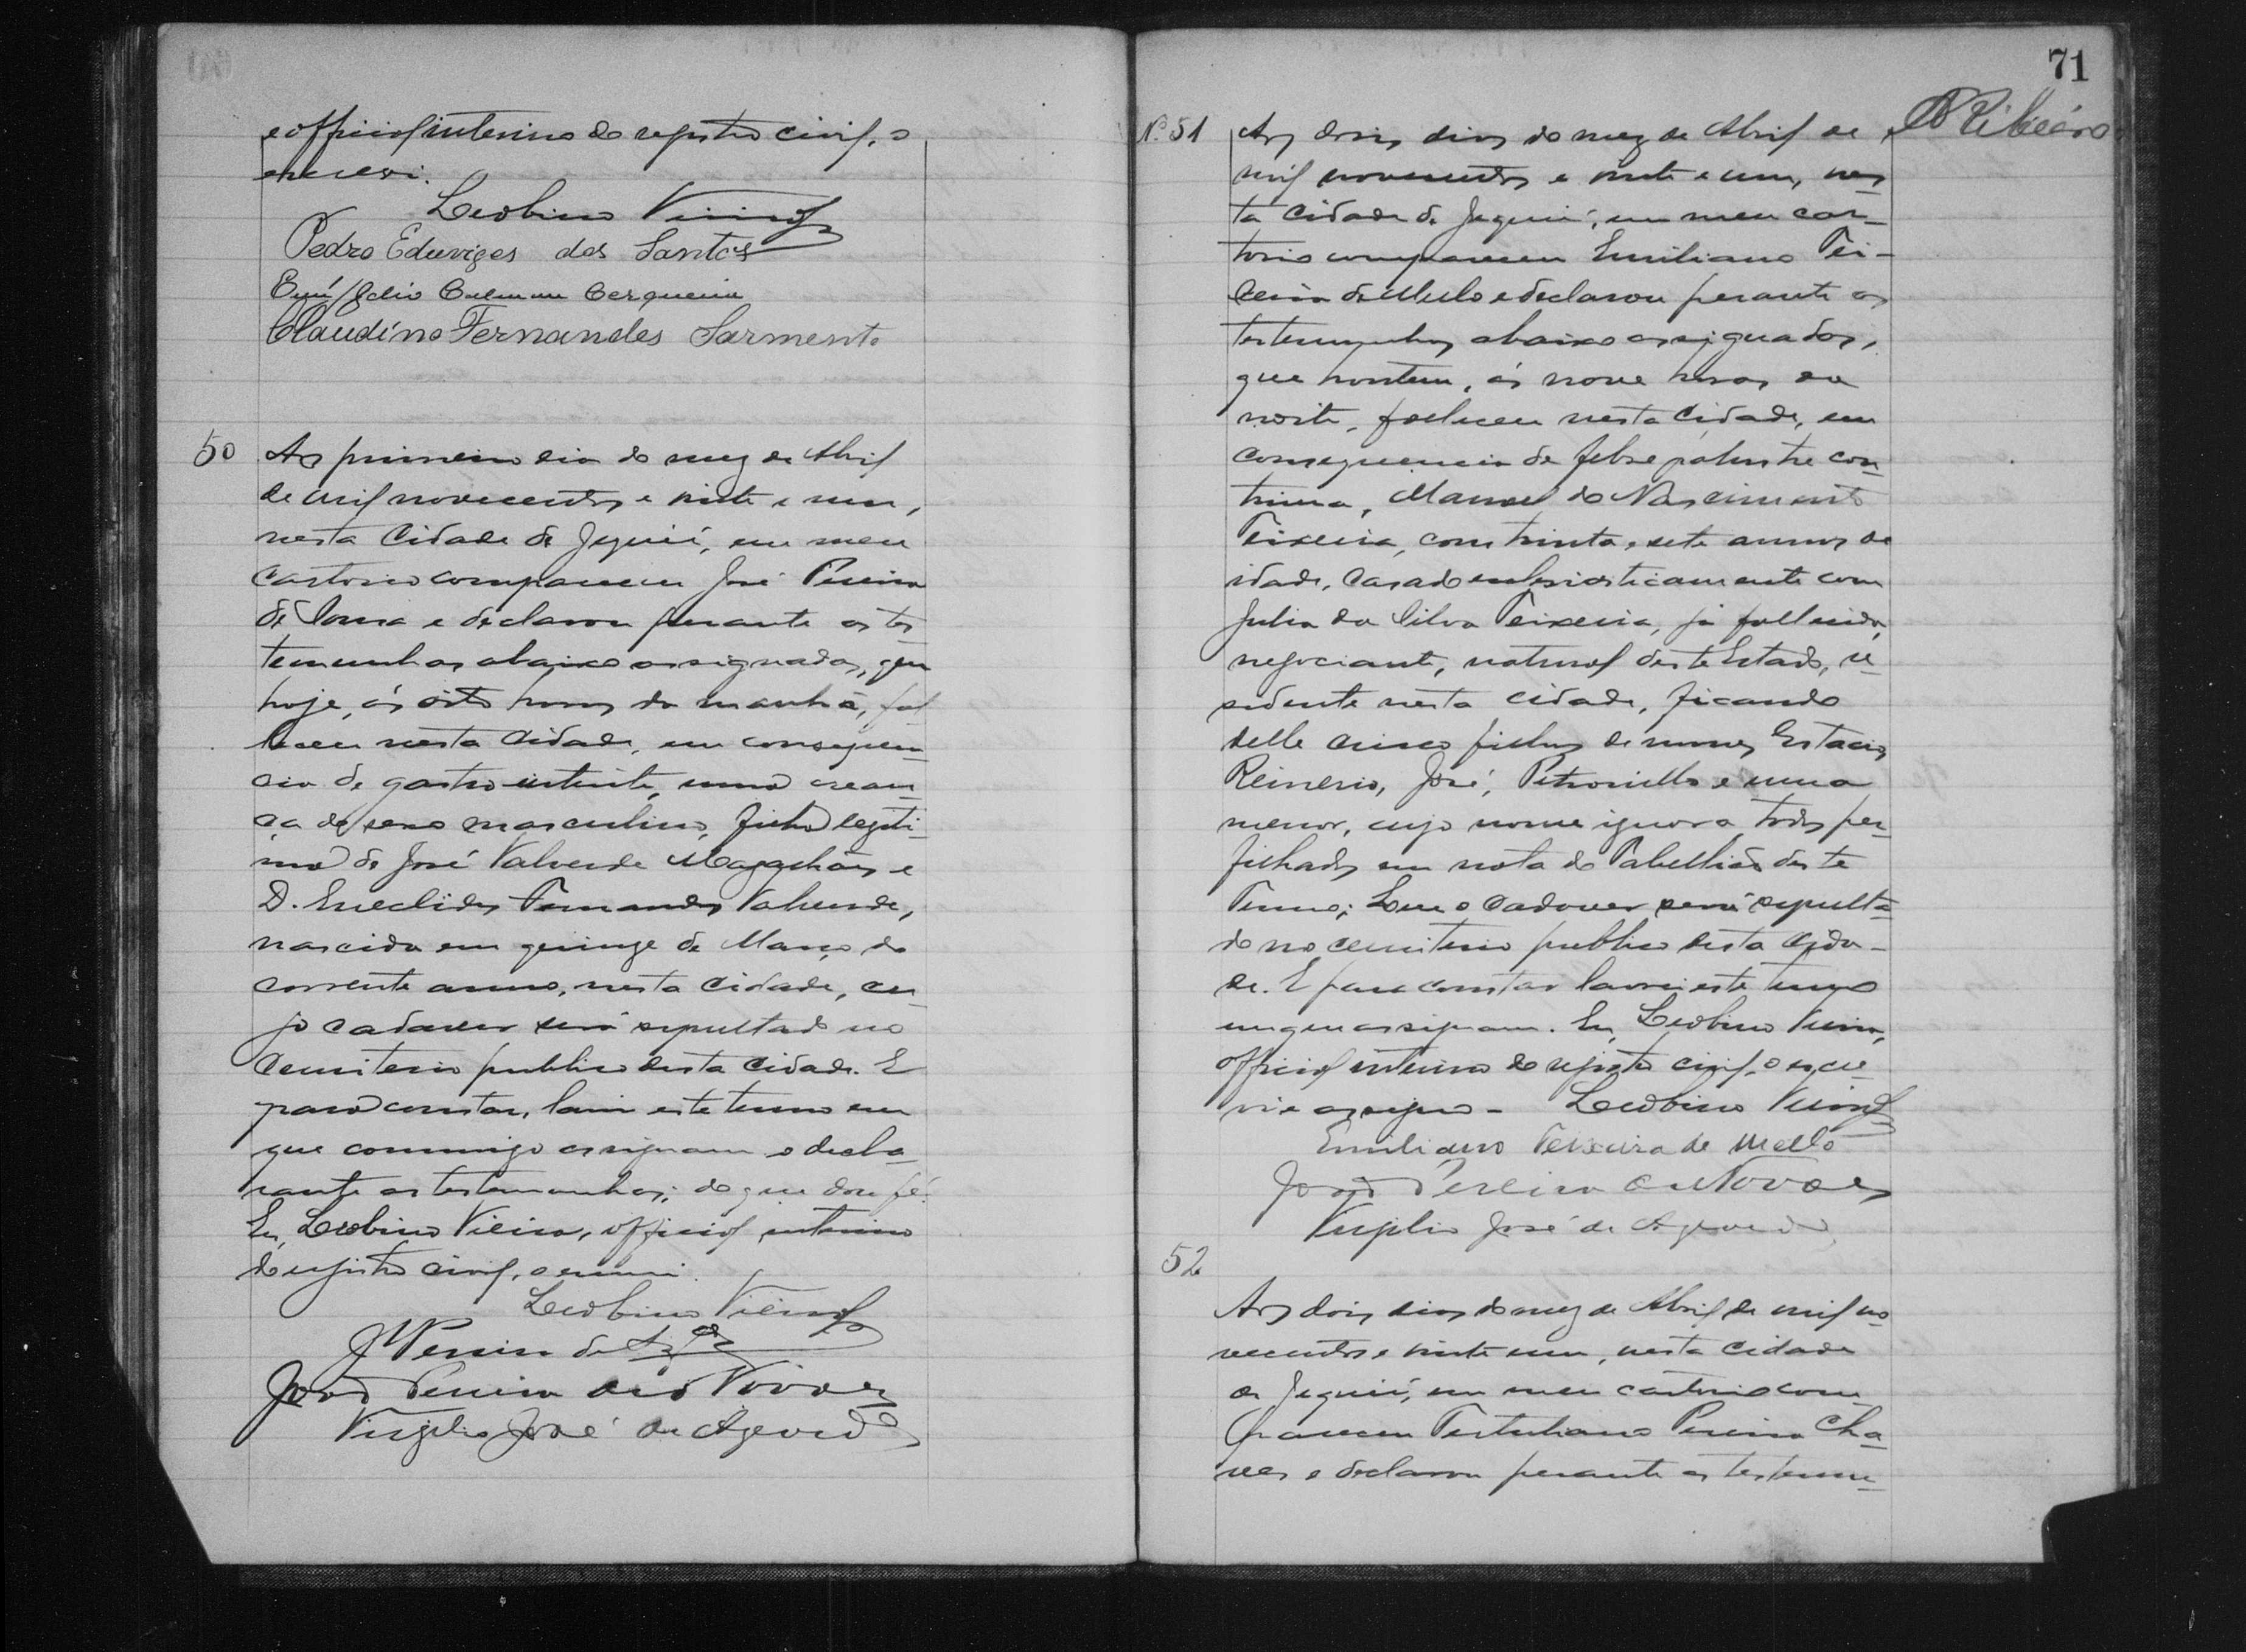 e official interino do registro civil, o
escrevi.
Leobino Vieira
Pedro Eduviges dos Santos
Cerqueira
Claudino Fernandes Sarmento
50
Ao primeiro dia do mez de Abril
de mil novecentos e vinte e um,
nesta Cidade de Jequié, em meu
Cartorio compareceu José Pereira
de Sousa e declarou perante as tes-
temunhas abaixo assignadas, que
hoje, ás oito horas da manhã, fal-
leceu nesta Cidade, em consequen-
cia de gastro enterite, uma crean-
ça do sexo masculino, filho legiti-
mo de José Valverde Magalhães e
D. Euclides Fernandes Valverde,
nascida em quinze de Março do
corrente anno, nesta Cidade, cu-
jo cadaver será sepultado no
Cemiterio publico desta Cidade. E
para constar, lavrei este termo em
que commigo assignam o decla-
rante as testemunhas; do que dou fé.
Eu, Leobino Vieira, official interino
do registro civil, o escrevi.
Leobino Vieira
Pereira de
João Pereira das Novaes
Virgilio José de Azevedo
71
Ribeiro
Nº 51
Aos dois dias do mez de Abril de
mil novecentos e vinte e um, nes-
ta Cidade de Jequié, em meu car-
torio compareceu Emiliano Tei-
xeira de Mello e declarou perante as
testemunhas abaixo assignadas,
que hontem, ás nove horas da
noite, falleceu nesta Cidade, em
consequencia de febre palustre con-
tinua, Manoel do Nascimento
Teixeira, com trinta e sete annos de
idade, casado ecclesiasticamente com
Julia da Silva Teixeira, já fallecida,
negociante, natural deste Estado, re-
sidente nesta cidade, ficando
delle cinco filhos de nomes Estacio,
Reinerio, José, Petronillo e uma
menor, cujo nome ignora, todos per-
filhados em nota do Tabellião deste
Termo; que o cadaver será sepulta-
do no cemiterio publico desta Cida-
de. E para constar lavrei este termo
em que assignam. Eu, Leobino Vieira,
official interino do registro civil, o escre-
vi e assigno - Leobino Vieira
Emiliano Teixeira de Mello
João Pereira das Novaes
Virgilio José de Azevedo
52
Aos dois dias do mez de Abril de mil no-
vecentos e vinte e um, nesta Cidade
de Jequié, em meu cartorio com-
pareceu Tertuliano Pereira Cha-
ves e declarou perante as testemu-